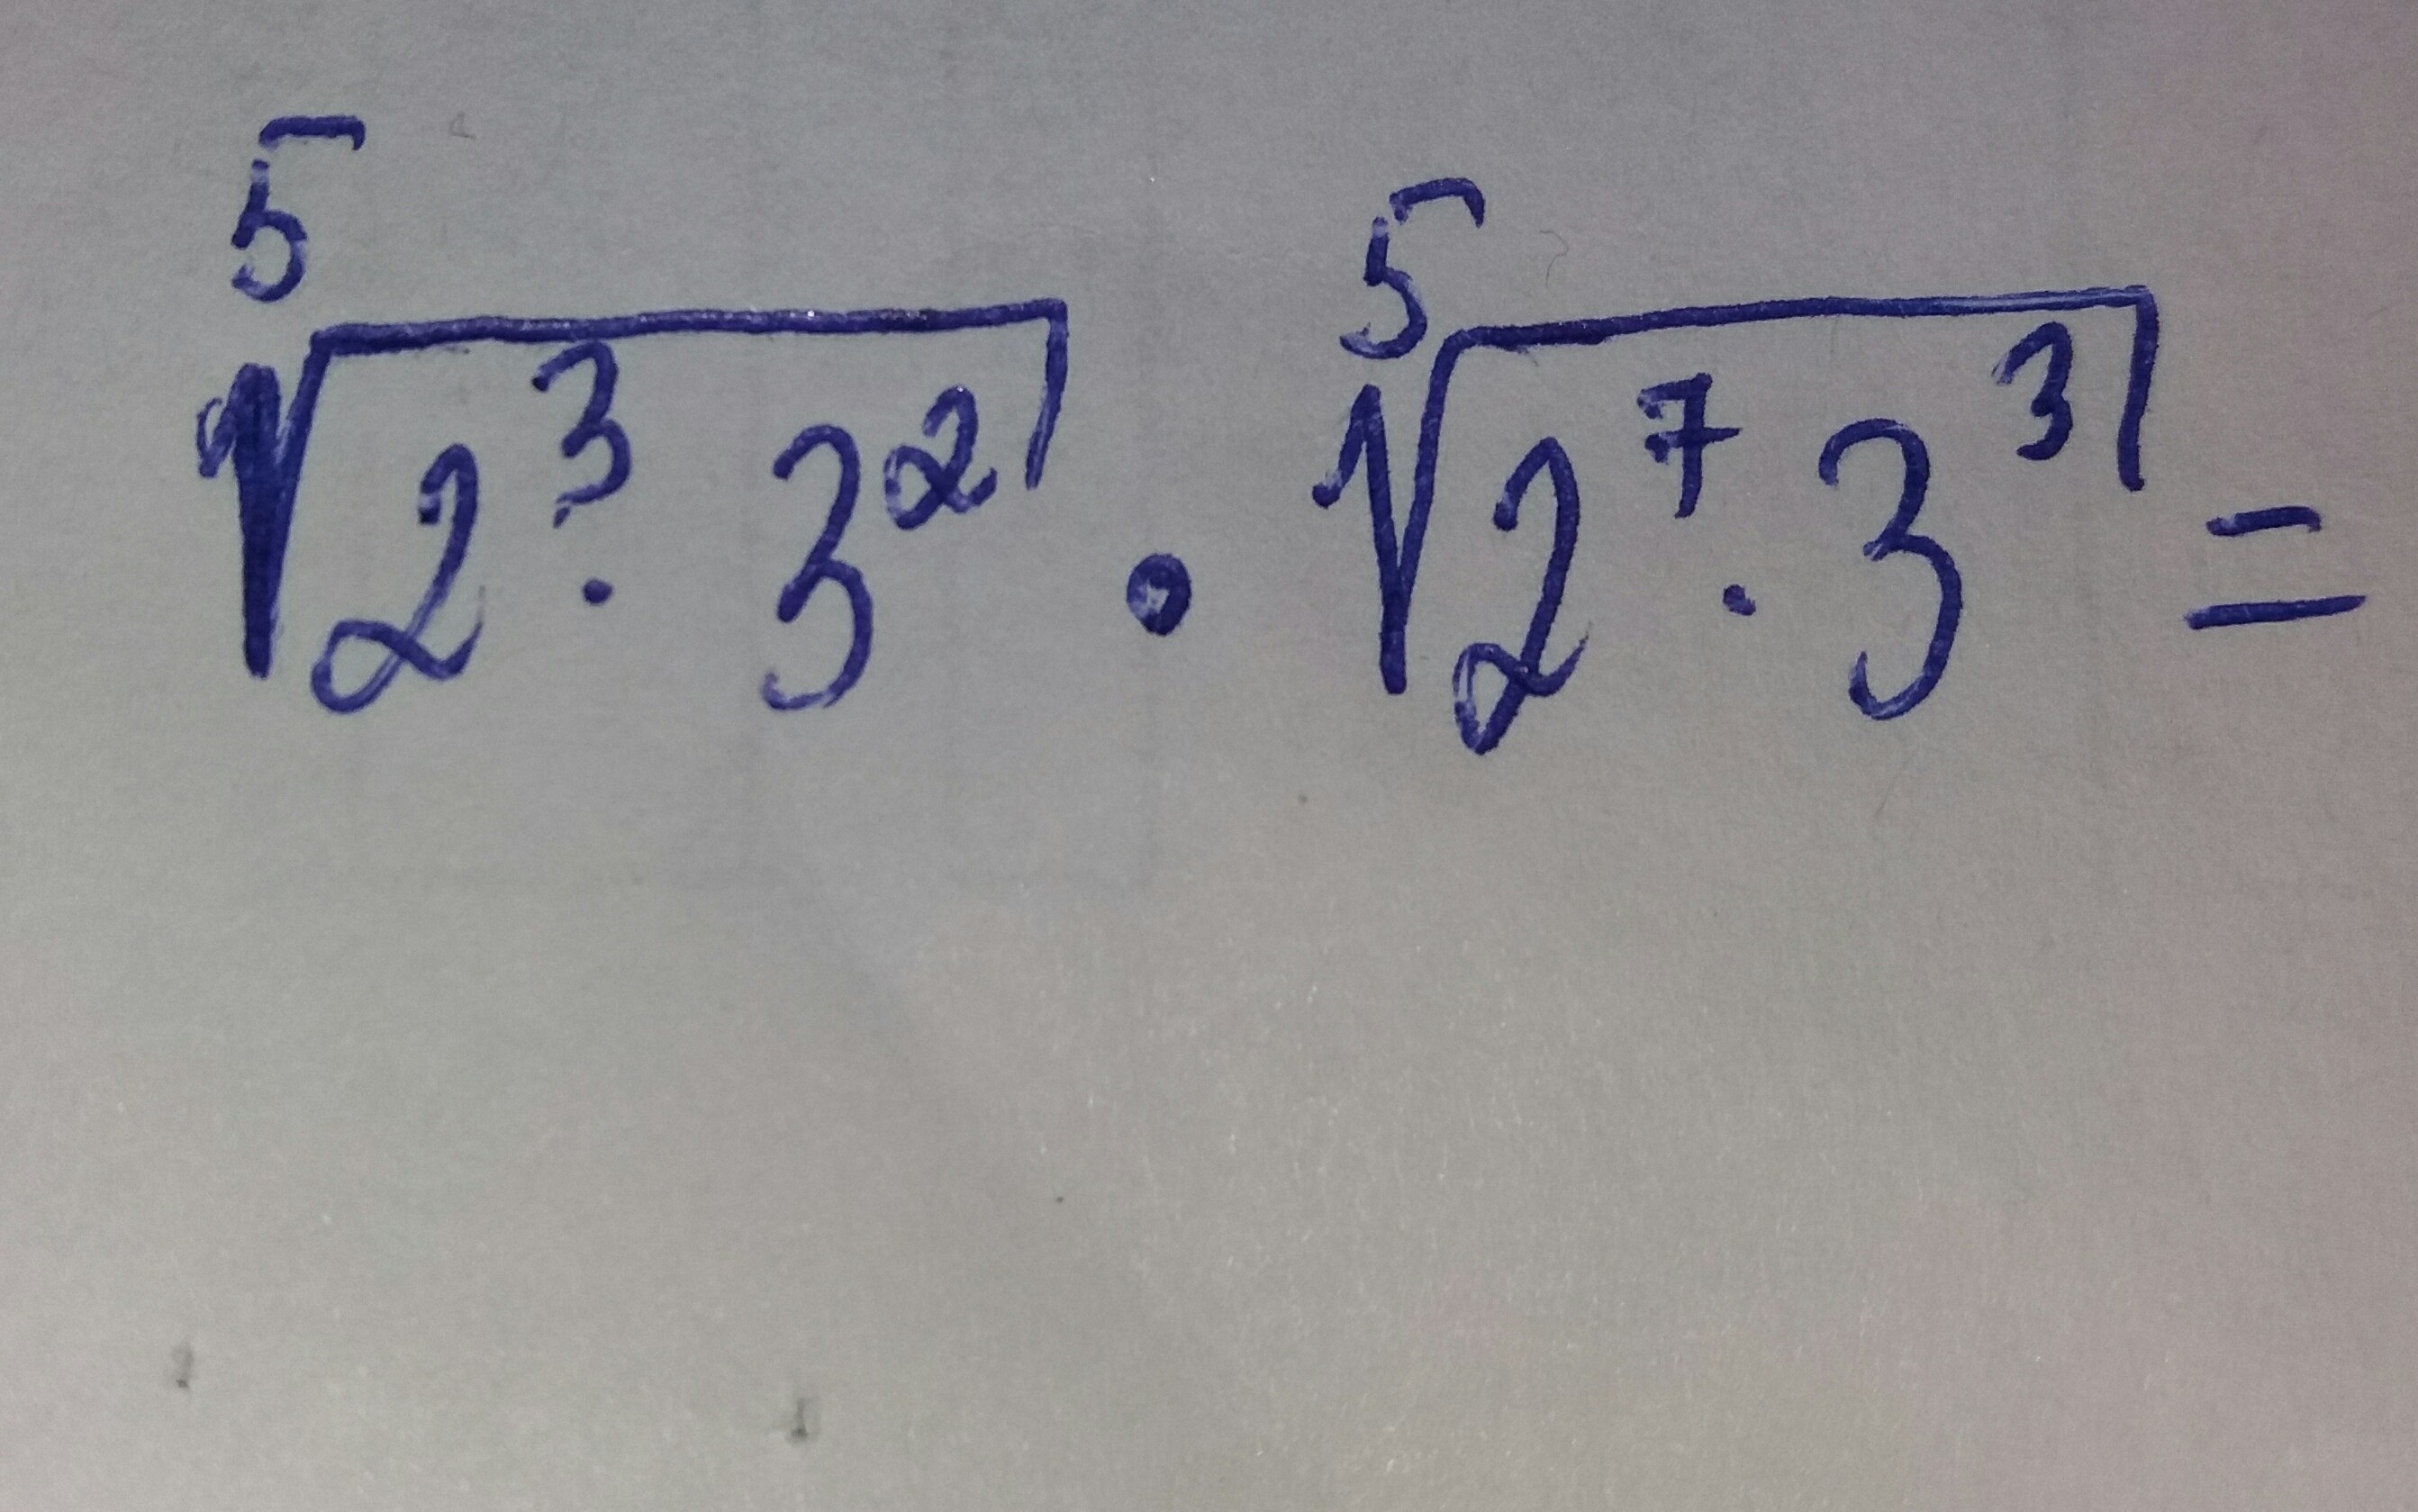 ⁵√(2³ · 3²) · ⁵√(2⁷ · 3³) =